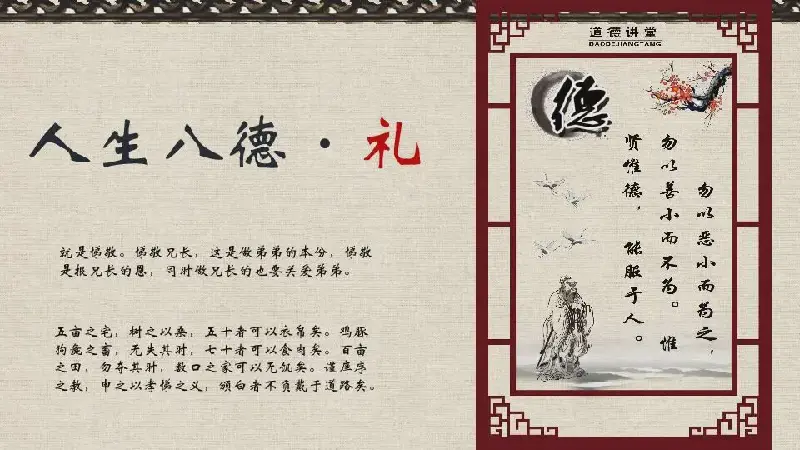 人生八德·礼
就是悌敬。悌敬兄长，这是做弟弟的本份，悌敬
是报兄长的恩，同时做兄长的也要关爱弟弟。
五亩之宅，树之以桑，五十者可以衣帛矣。鸡豚
狗彘之畜，无失其时，七十者可以食肉矣。百亩
之田，勿夺其时，数口之家可以无饥矣。谨庠序
之教，申之以孝悌之义，颁白者不负戴于道路矣。
道德讲堂
DAODEJIANGTANG
德
勿以恶小而为之，
勿以善小而不为。惟
贤惟德，能服于人。